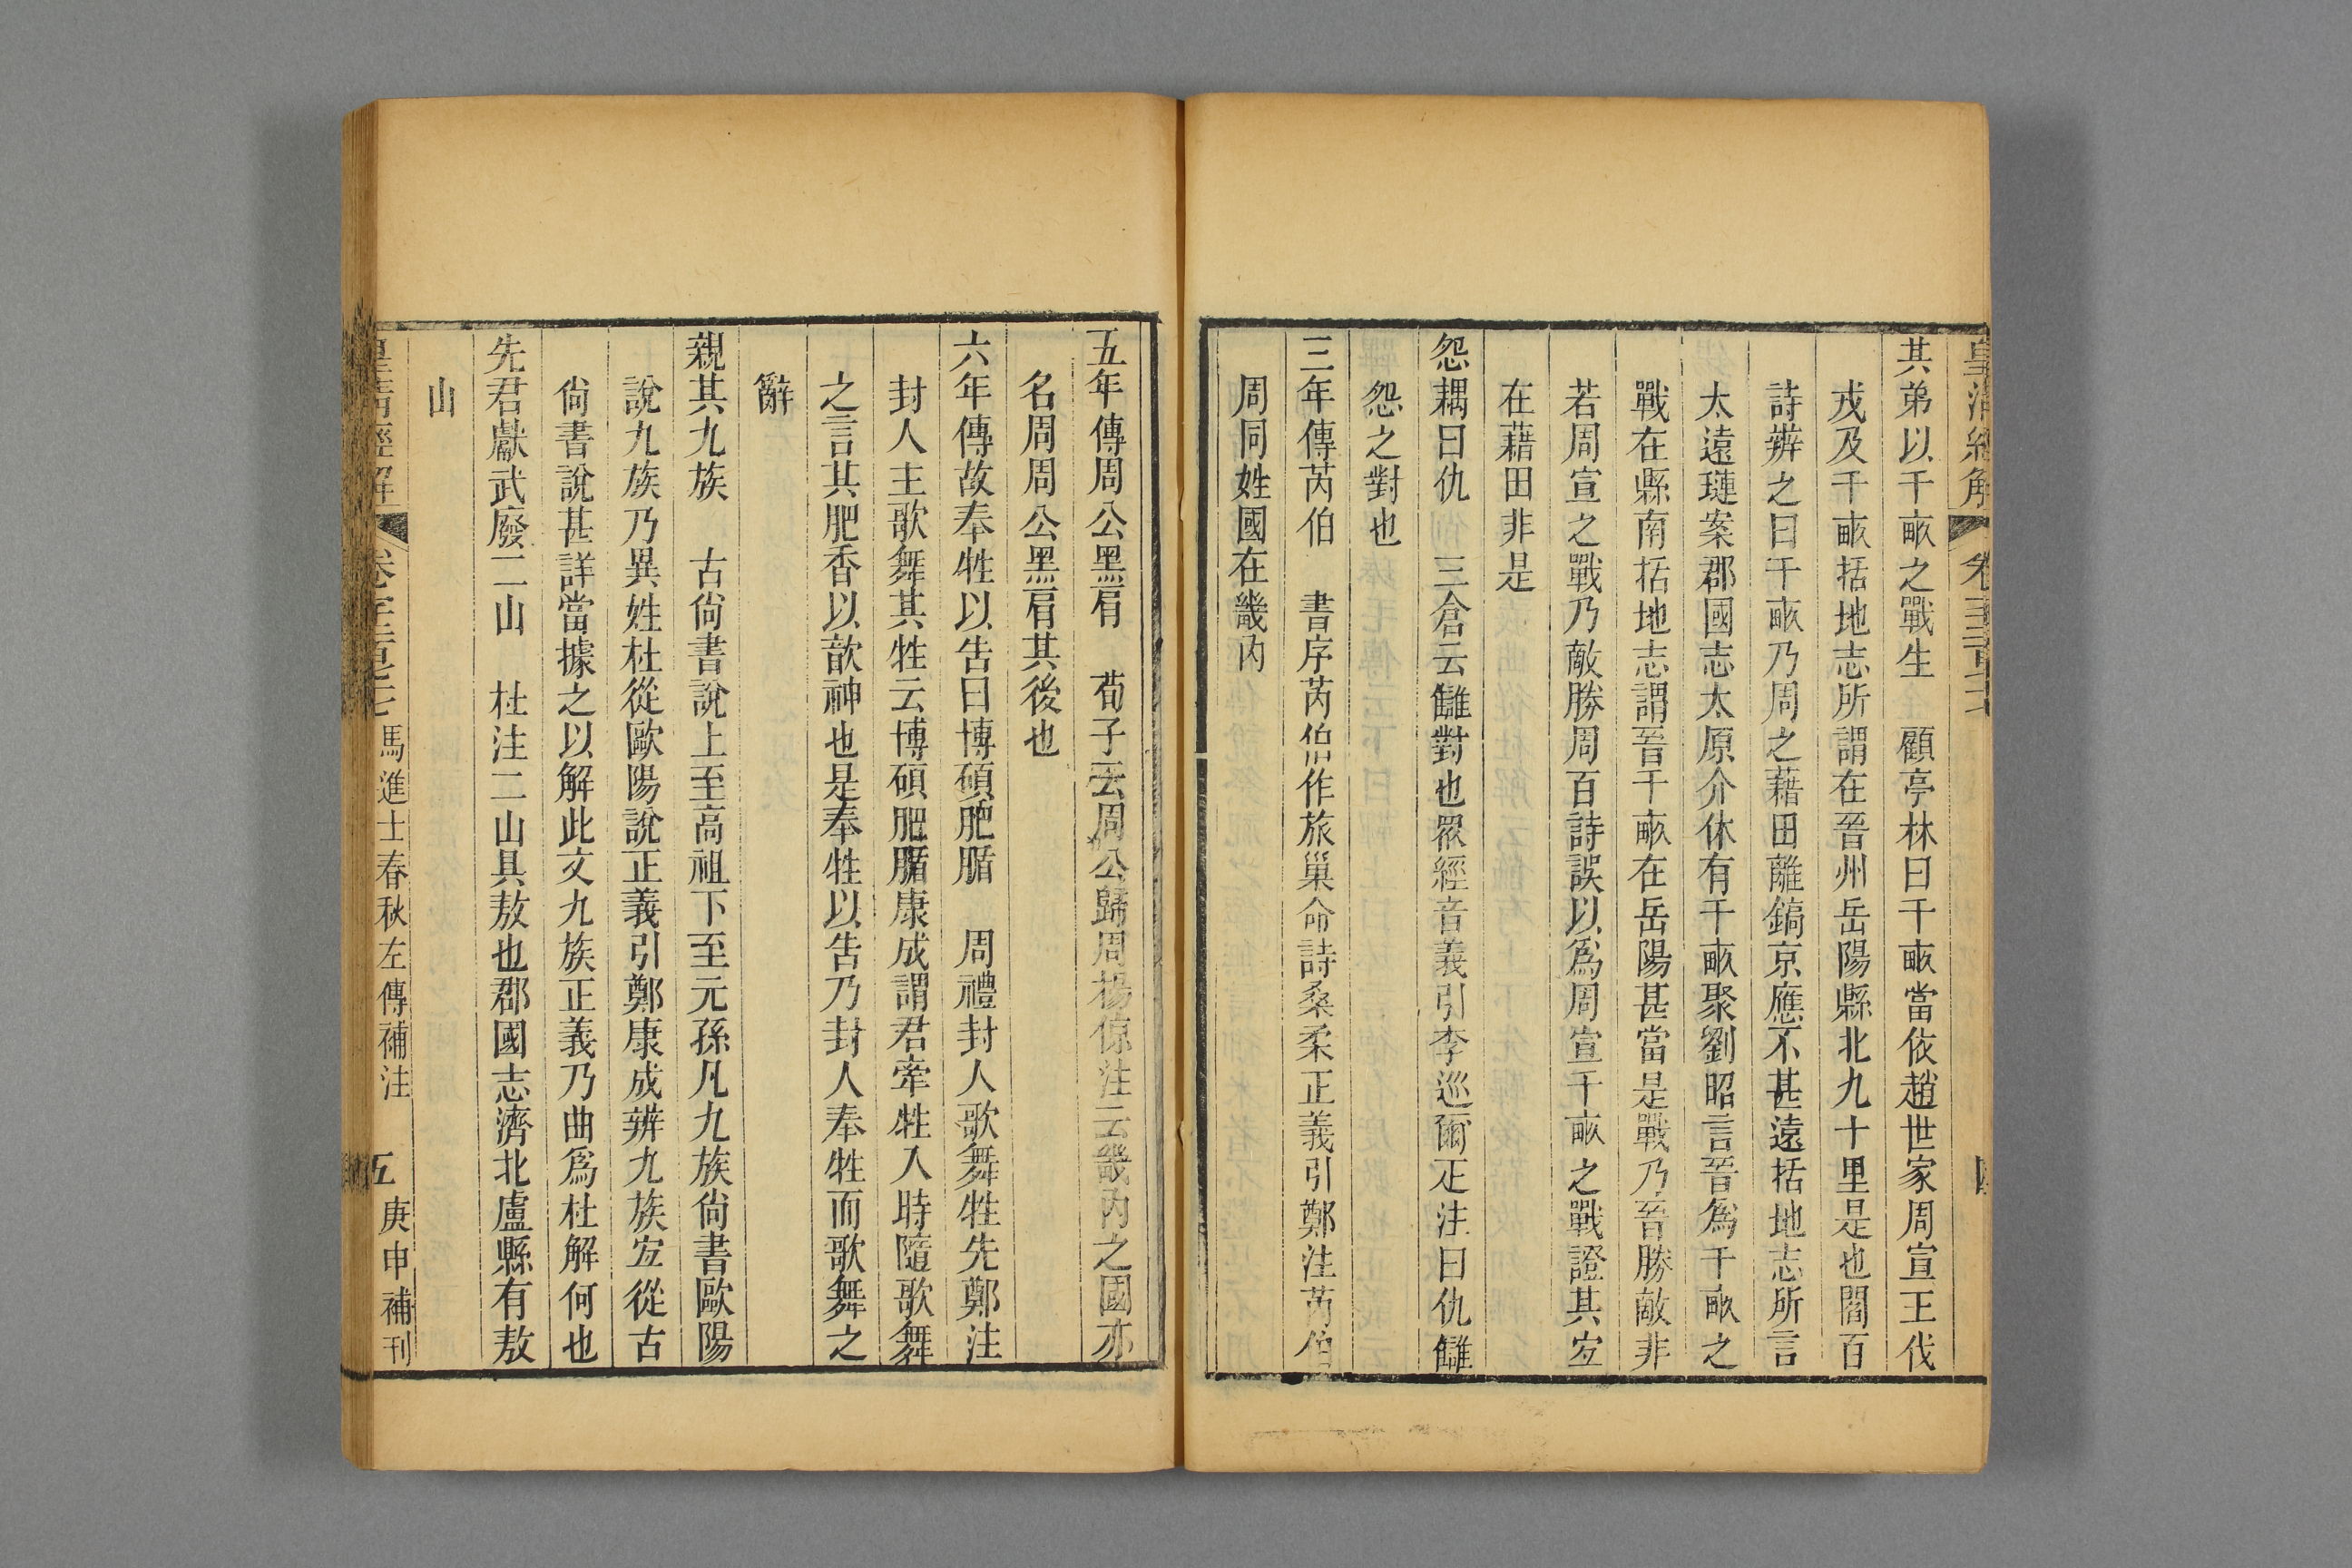 其弟以千畝之戰生　顧亭林曰千畝當依趙世家周宣王伐
戎及千畝括地志所謂在晉州岳陽縣北九十里是也閻百
詩辨之曰千畝乃周之藉田離鎬京應不甚遠括地志所言
太遠璉案郡國志太原介休有千畝聚劉昭言晉爲千畝之
戰在縣南括地志謂晉千畝在岳陽甚當是戰乃晉勝敵非
若周宣之戰乃敵勝周百詩誤以爲周宣千畝之戰證其宐
在藉田非是
怨耦曰仇　三倉云讎對也眾經音義引李巡爾疋注曰仇讎
怨之對也
三年傳芮伯　書序芮伯作旅巢命詩桑柔正義引鄭注芮伯
周同姓國在畿內
五年傳周公黑肩　荀子云周公歸周楊倞注云畿內之國亦
名周周公黑肩其後也
六年傳故奉牲以告曰博碩肥腯　周禮封人歌舞牲先鄭注
封人主歌舞其牲云博碩肥腯康成謂君牽牲入時隨歌舞
之言其肥香以歆神也是奉牲以告乃封人奉牲而歌舞之
辭
親其九族　古尙書說上至高祖下至元孫凡九族尙書歐陽
說九族乃異姓杜從歐陽說正義引鄭康成辨九族宐從古
尙書說甚詳當據之以解此文九族正義乃曲爲杜解何也
先君獻武廢二山　杜注二山具敖也郡國志濟北盧縣有敖
山
皇淸經解　馬進士春秋左傳補注　五　庚申補刊